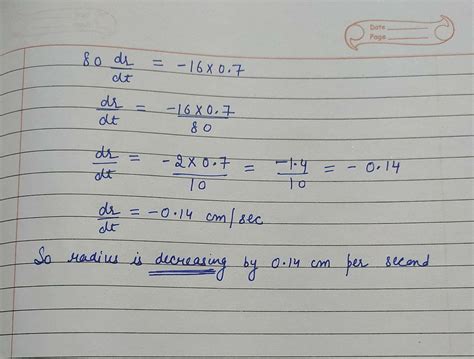 Date
Page
80 dr/dt = -16×0.7
dr/dt = -16×0.7/80
dr/dt = -2×0.7/10 = -1.4/10 = -0.14
dr/dt = -0.14 cm/sec
So radius is decreasing by 0.14 cm per second